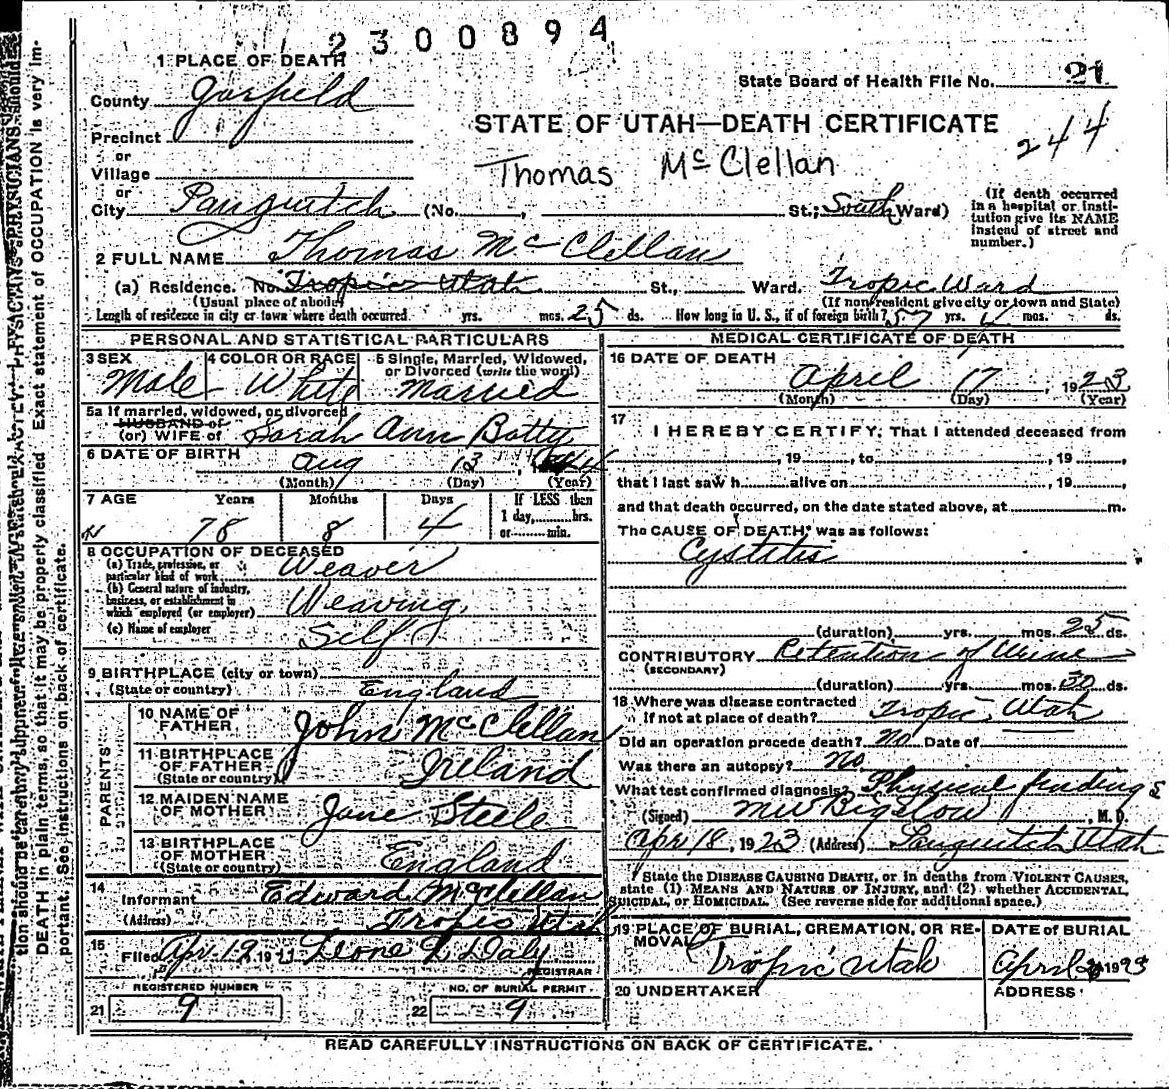 2300894
1 PLACE OF DEATH
State Board of Health File No. 21
County Garfield
STATE OF UTAH—DEATH CERTIFICATE
244
Precinct
or
Village
Thomas McClellan
or
City Panguitch (No. , St.; South Ward)
(If death occurred in a hospital or insti-
tution give its NAME
instead of street and
number.)
2 FULL NAME Thomas McClellan
(a) Residence. No. Tropic Utah St., Ward. Tropic Ward
(Usual place of abode) (If non-resident give city or town and State)
Length of residence in city or town where death occurred yrs. mos. 25 ds. How long in U. S., if of foreign birth? 57 yrs. mos. ds.
PERSONAL AND STATISTICAL PARTICULARS
3 SEX Male
4 COLOR OR RACE White
5 Single, Married, Widowed, or Divorced (write the word) Married
5a If married, widowed, or divorced
HUSBAND of
(or) WIFE of Sarah Ann Batty
6 DATE OF BIRTH Aug 13,
(Month) (Day) (Year)
7 AGE Years Months Days If LESS than
78 8 4 1 day, hrs.
or min.
8 OCCUPATION OF DECEASED
(a) Trade, profession, or
particular kind of work Weaver
(b) General nature of industry,
business, or establishment in
which employed (or employer) Weaving
(c) Name of employer Self
9 BIRTHPLACE (city or town)
(State or country) England
PARENTS
10 NAME OF FATHER John McClellan
11 BIRTHPLACE OF FATHER
(State or country) Ireland
12 MAIDEN NAME OF MOTHER Jane Steele
13 BIRTHPLACE OF MOTHER
(State or country) England
14 Informant Edward McClellan
(Address) Tropic Utah
15 Filed Apr. 19 Leone L Daly
REGISTRAR
REGISTERED NUMBER
21 9
NO. OF BURIAL PERMIT
22 9
MEDICAL CERTIFICATE OF DEATH
16 DATE OF DEATH
April 17, 1923
(Month) (Day) (Year)
17 I HEREBY CERTIFY, That I attended deceased from
, 19 , to , 19 ,
that I last saw h alive on , 19 ,
and that death occurred, on the date stated above, at m.
The CAUSE OF DEATH* was as follows:
Cystitis
(duration) yrs. mos. 25 ds.
CONTRIBUTORY Retention of Urine
(SECONDARY)
(duration) yrs. mos. 30 ds.
18 Where was disease contracted
if not at place of death? Tropic, Utah
Did an operation precede death? no Date of
Was there an autopsy? no
What test confirmed diagnosis? Physical findings
(Signed) MW Bigelow, M. D.
Apr 18, 1923 (Address) Panguitch Utah
*State the DISEASE CAUSING DEATH, or in deaths from VIOLENT CAUSES,
state (1) MEANS AND NATURE OF INJURY, and (2) whether ACCIDENTAL,
SUICIDAL, or HOMICIDAL. (See reverse side for additional space.)
19 PLACE OF BURIAL, CREMATION, OR RE-
MOVAL Tropic Utah
DATE of BURIAL
April 1923
20 UNDERTAKER
ADDRESS
READ CAREFULLY INSTRUCTIONS ON BACK OF CERTIFICATE.
DEATH in plain terms, so that it may be properly classified. Exact statement of OCCUPATION is very im-
portant. See instructions on back of certificate.